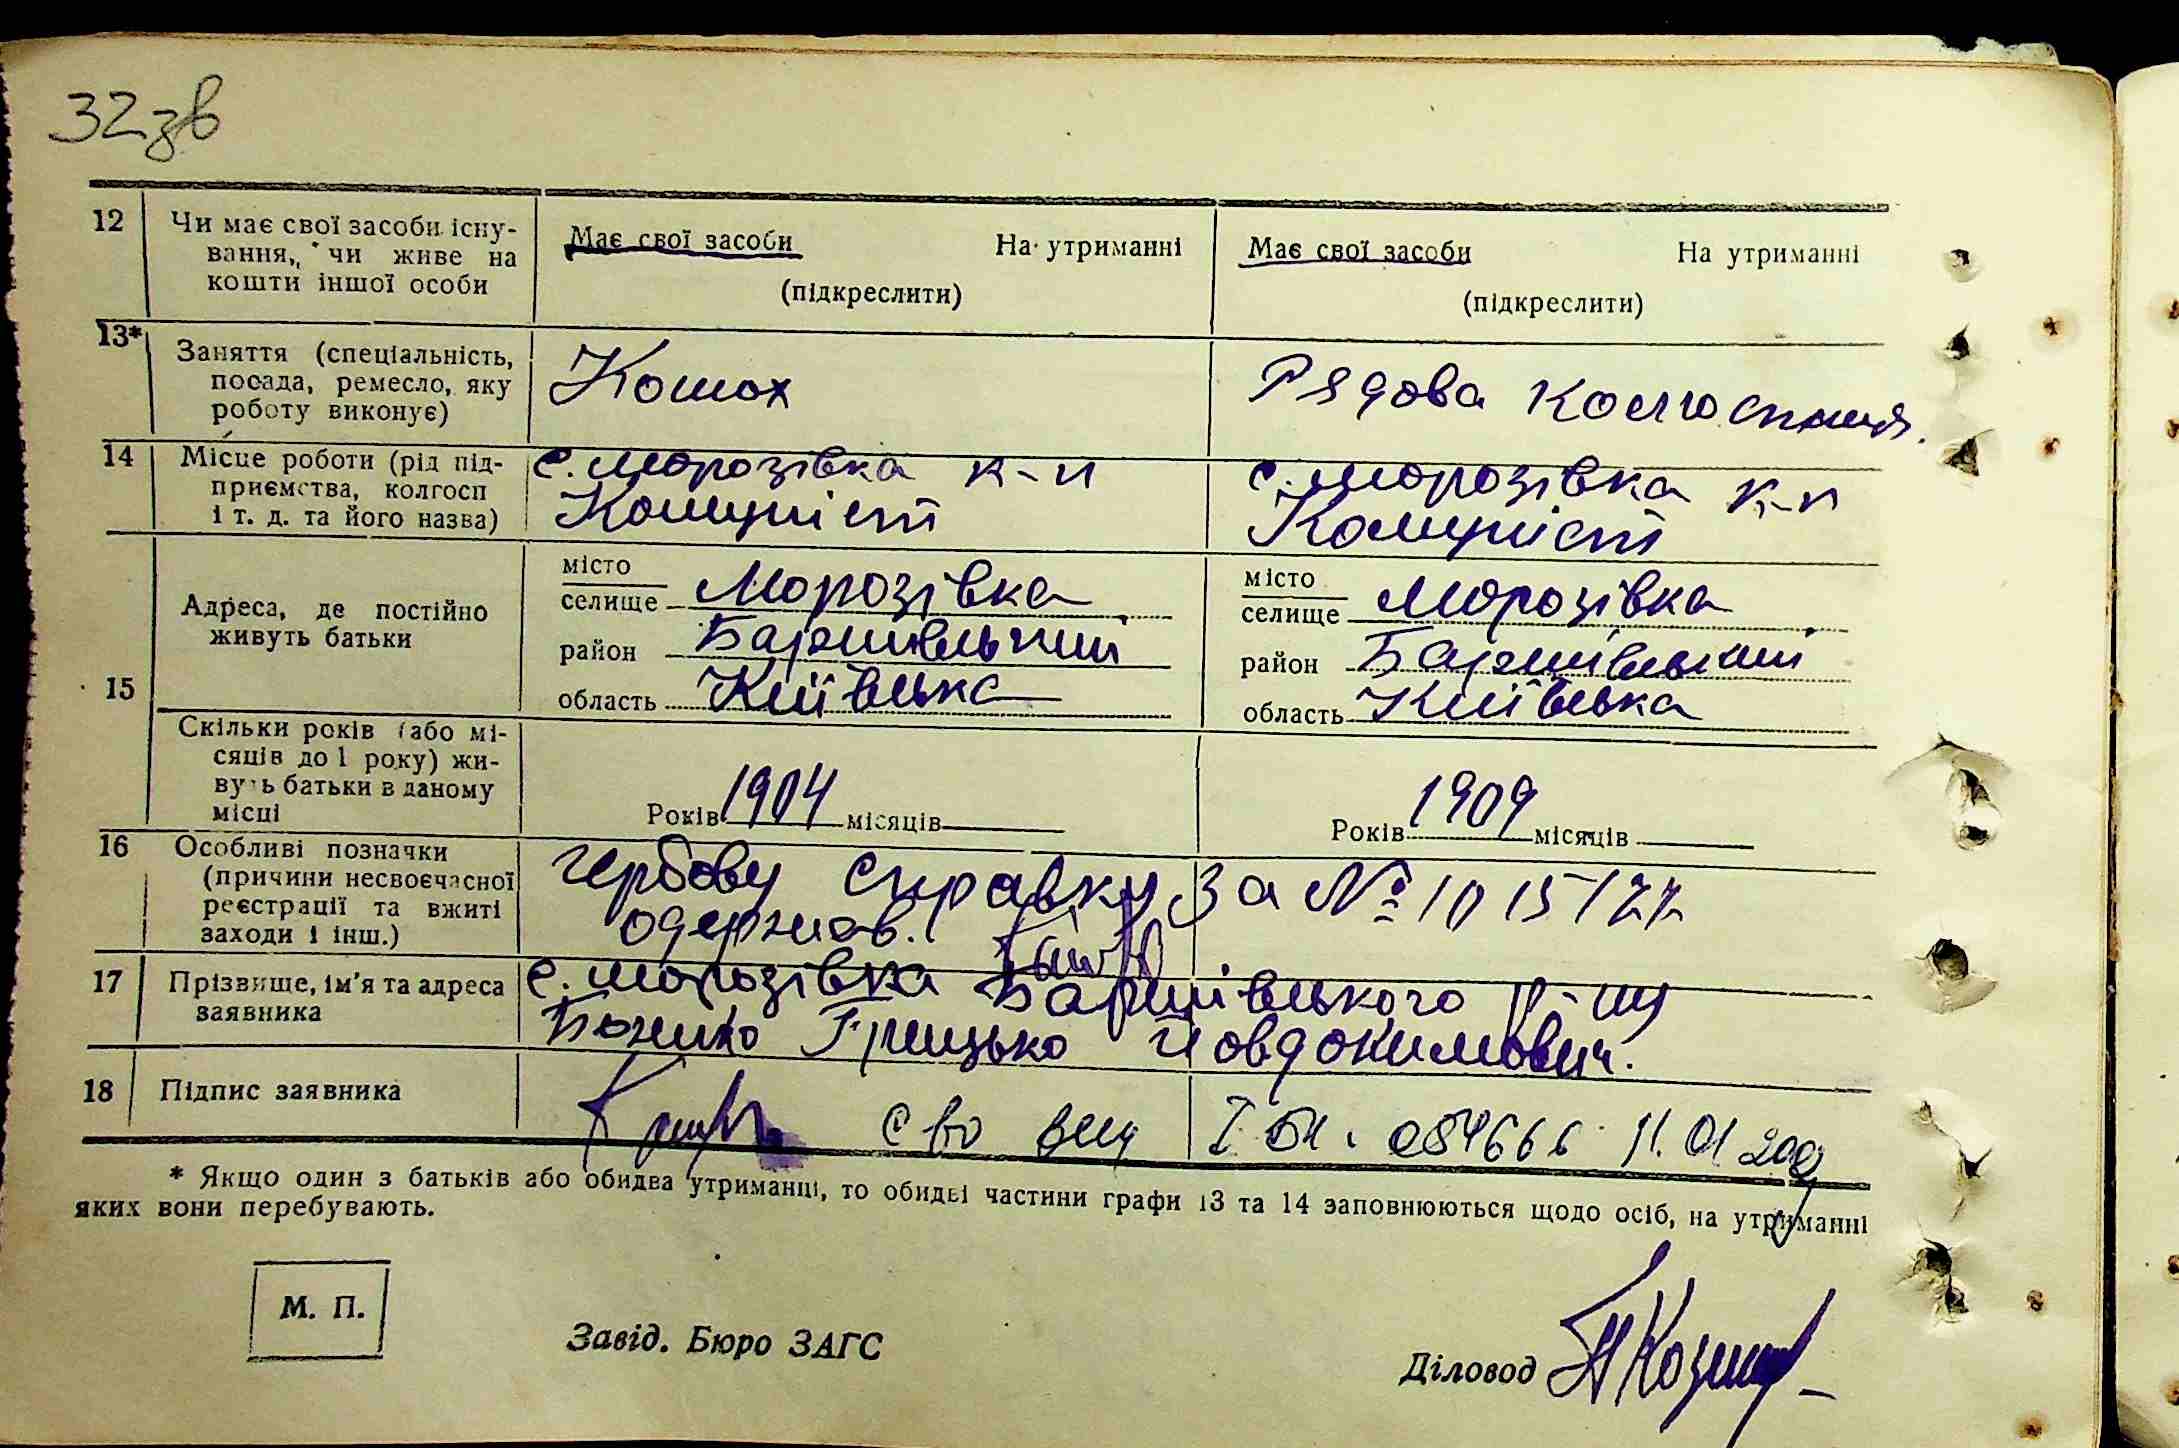 32зв
12
Чи має свої засоби існу-
вання, чи живе на
кошти іншої особи
Має свої засоби На утриманні
(підкреслити)
Має свої засоби На утриманні
(підкреслити)
13*
Заняття (спеціальність,
посада, ремесло, яку
роботу виконує)
Рядова колгоспниця.
14
Місце роботи (рід під-
приємства, колгосп
і т. д. та його назва)
с. Морозівка к-п
Комуніст
с. Морозівка к-п
Комуніст
15
Адреса, де постійно
живуть батьки
місто
селище Морозівка
район Баришівський
область Київська
місто
селище Морозівка
район Баришівський
область Київська
Скільки років (або мі-
сяців до 1 року) жи-
вуть батьки в даному
місці
Років 1904 місяців
Років 1909 місяців
16
Особливі позначки
(причини несвоєчасної
реєстрації та вжиті
заходи і інш.)
гербову справку за № 1015177
одержав.
17
Прізвище, ім'я та адреса
заявника
с. Морозівка Баришівського р-ну
Грицько Йовдокимович.
18
Підпис заявника
І БК. 084666 11.01 200
* Якщо один з батьків або обидва утриманці, то обидві частини графи 13 та 14 заповнюються щодо осіб, на утриманні
яких вони перебувають.
М. П.
Завід. Бюро ЗАГС
Діловод